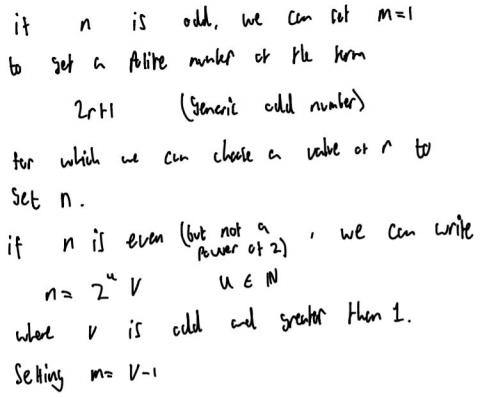 if n is odd, we can set m=1
to get a polite number of the form
2r+1 (generic odd number)
for which we can choose a value of r to
get n.
if n is even (but not a power of 2), we can write
n = 2^u v u ∈ ℕ
where v is odd and greater than 1.
Setting m = v-1